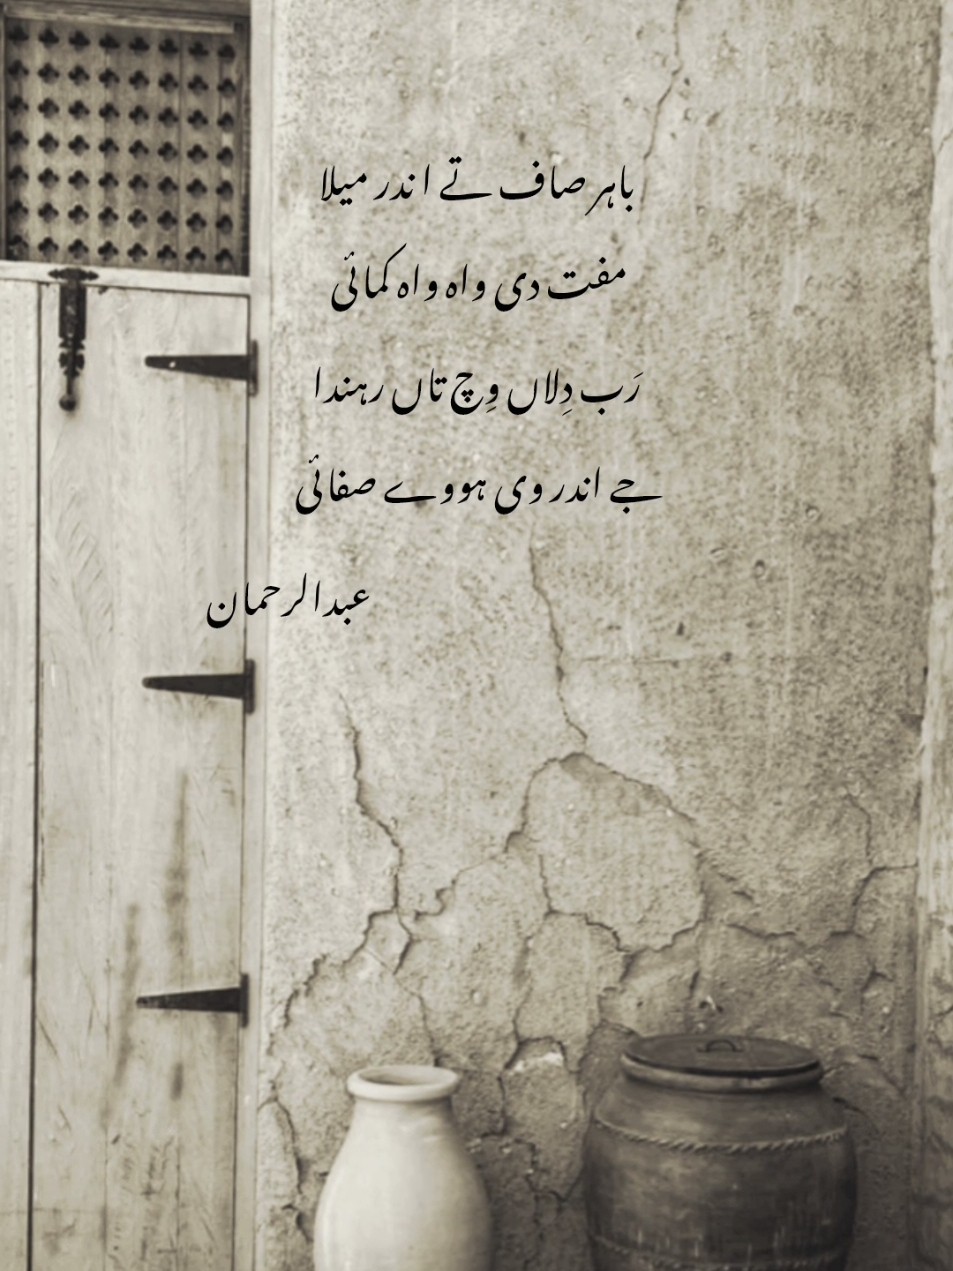 باہر صاف تے اندر میلا
مفت دی واہ واہ کمائی
رَب دِلاں وِچ تاں رہندا
جے اندر وی ہووے صفائی
عبدالرحمان